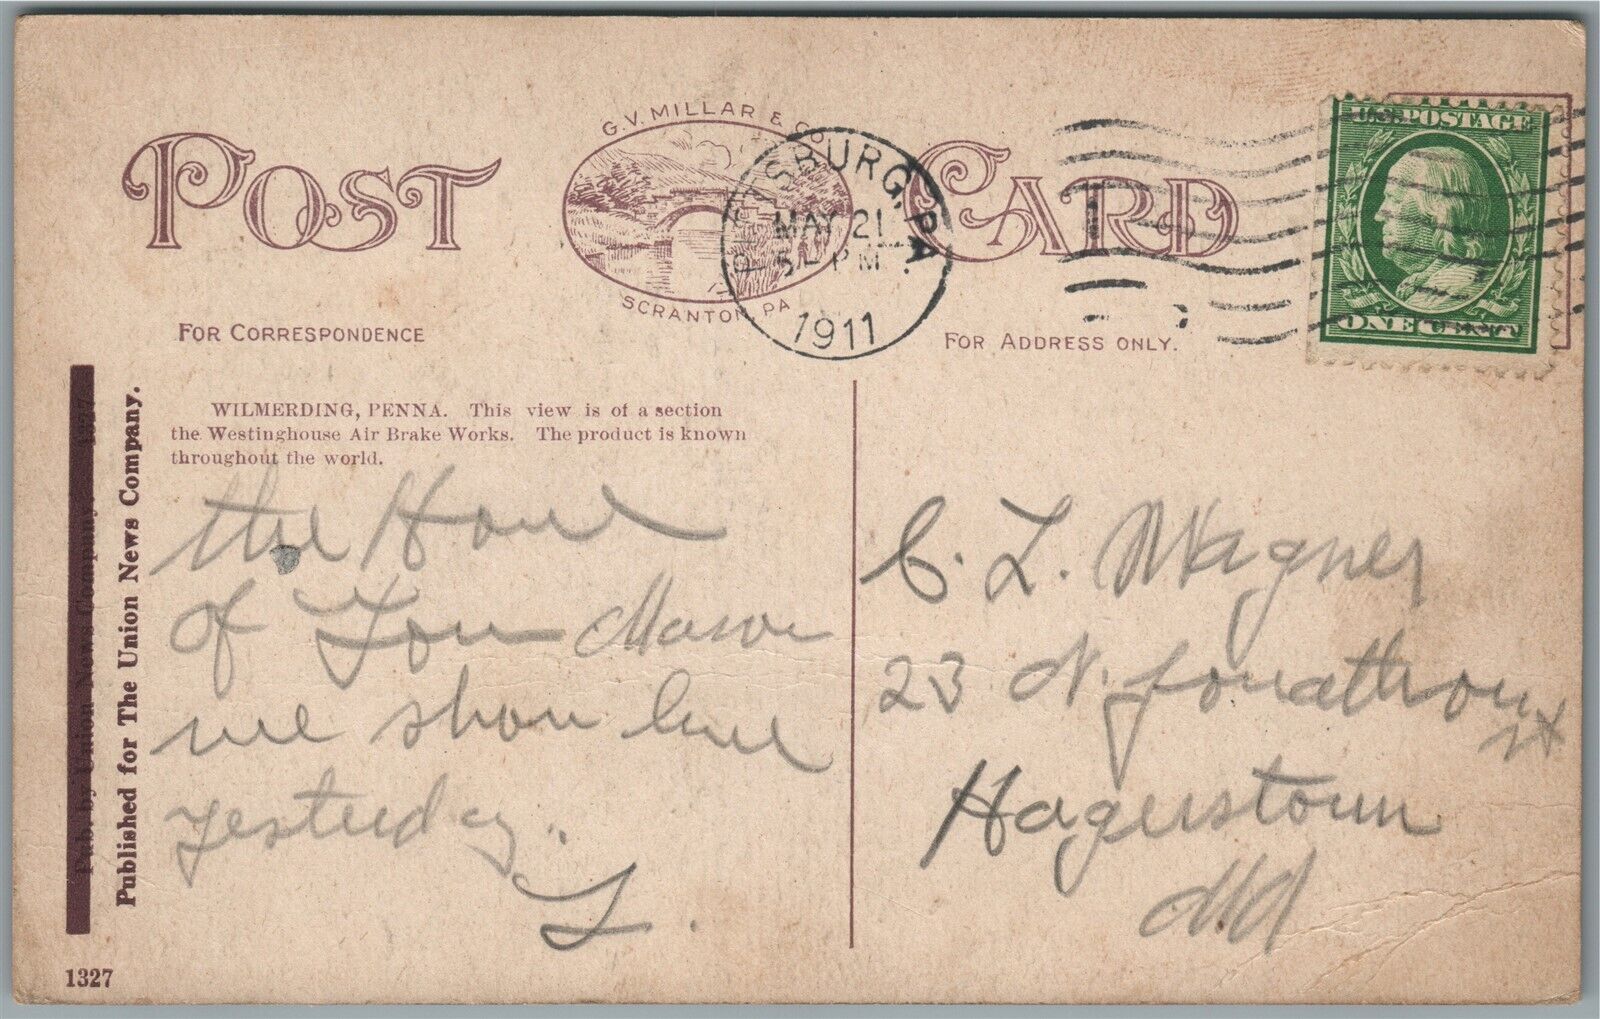 POST CARD
G.V. MILLAR & CO.
SCRANTON, PA
PITTSBURG, PA.
MAY 21
5 - PM
1911
U.S. POSTAGE
ONE CENT
FOR CORRESPONDENCE
FOR ADDRESS ONLY.
WILMERDING, PENNA. This view is of a section
the Westinghouse Air Brake Works. The product is known
throughout the world.
Pub. by Union News Company. 1327.
Published for The Union News Company.
the
of
we
yesterday.
L.
C. L. Wagner
23 N. Jonathon
st
Hagerstown
Md
1327